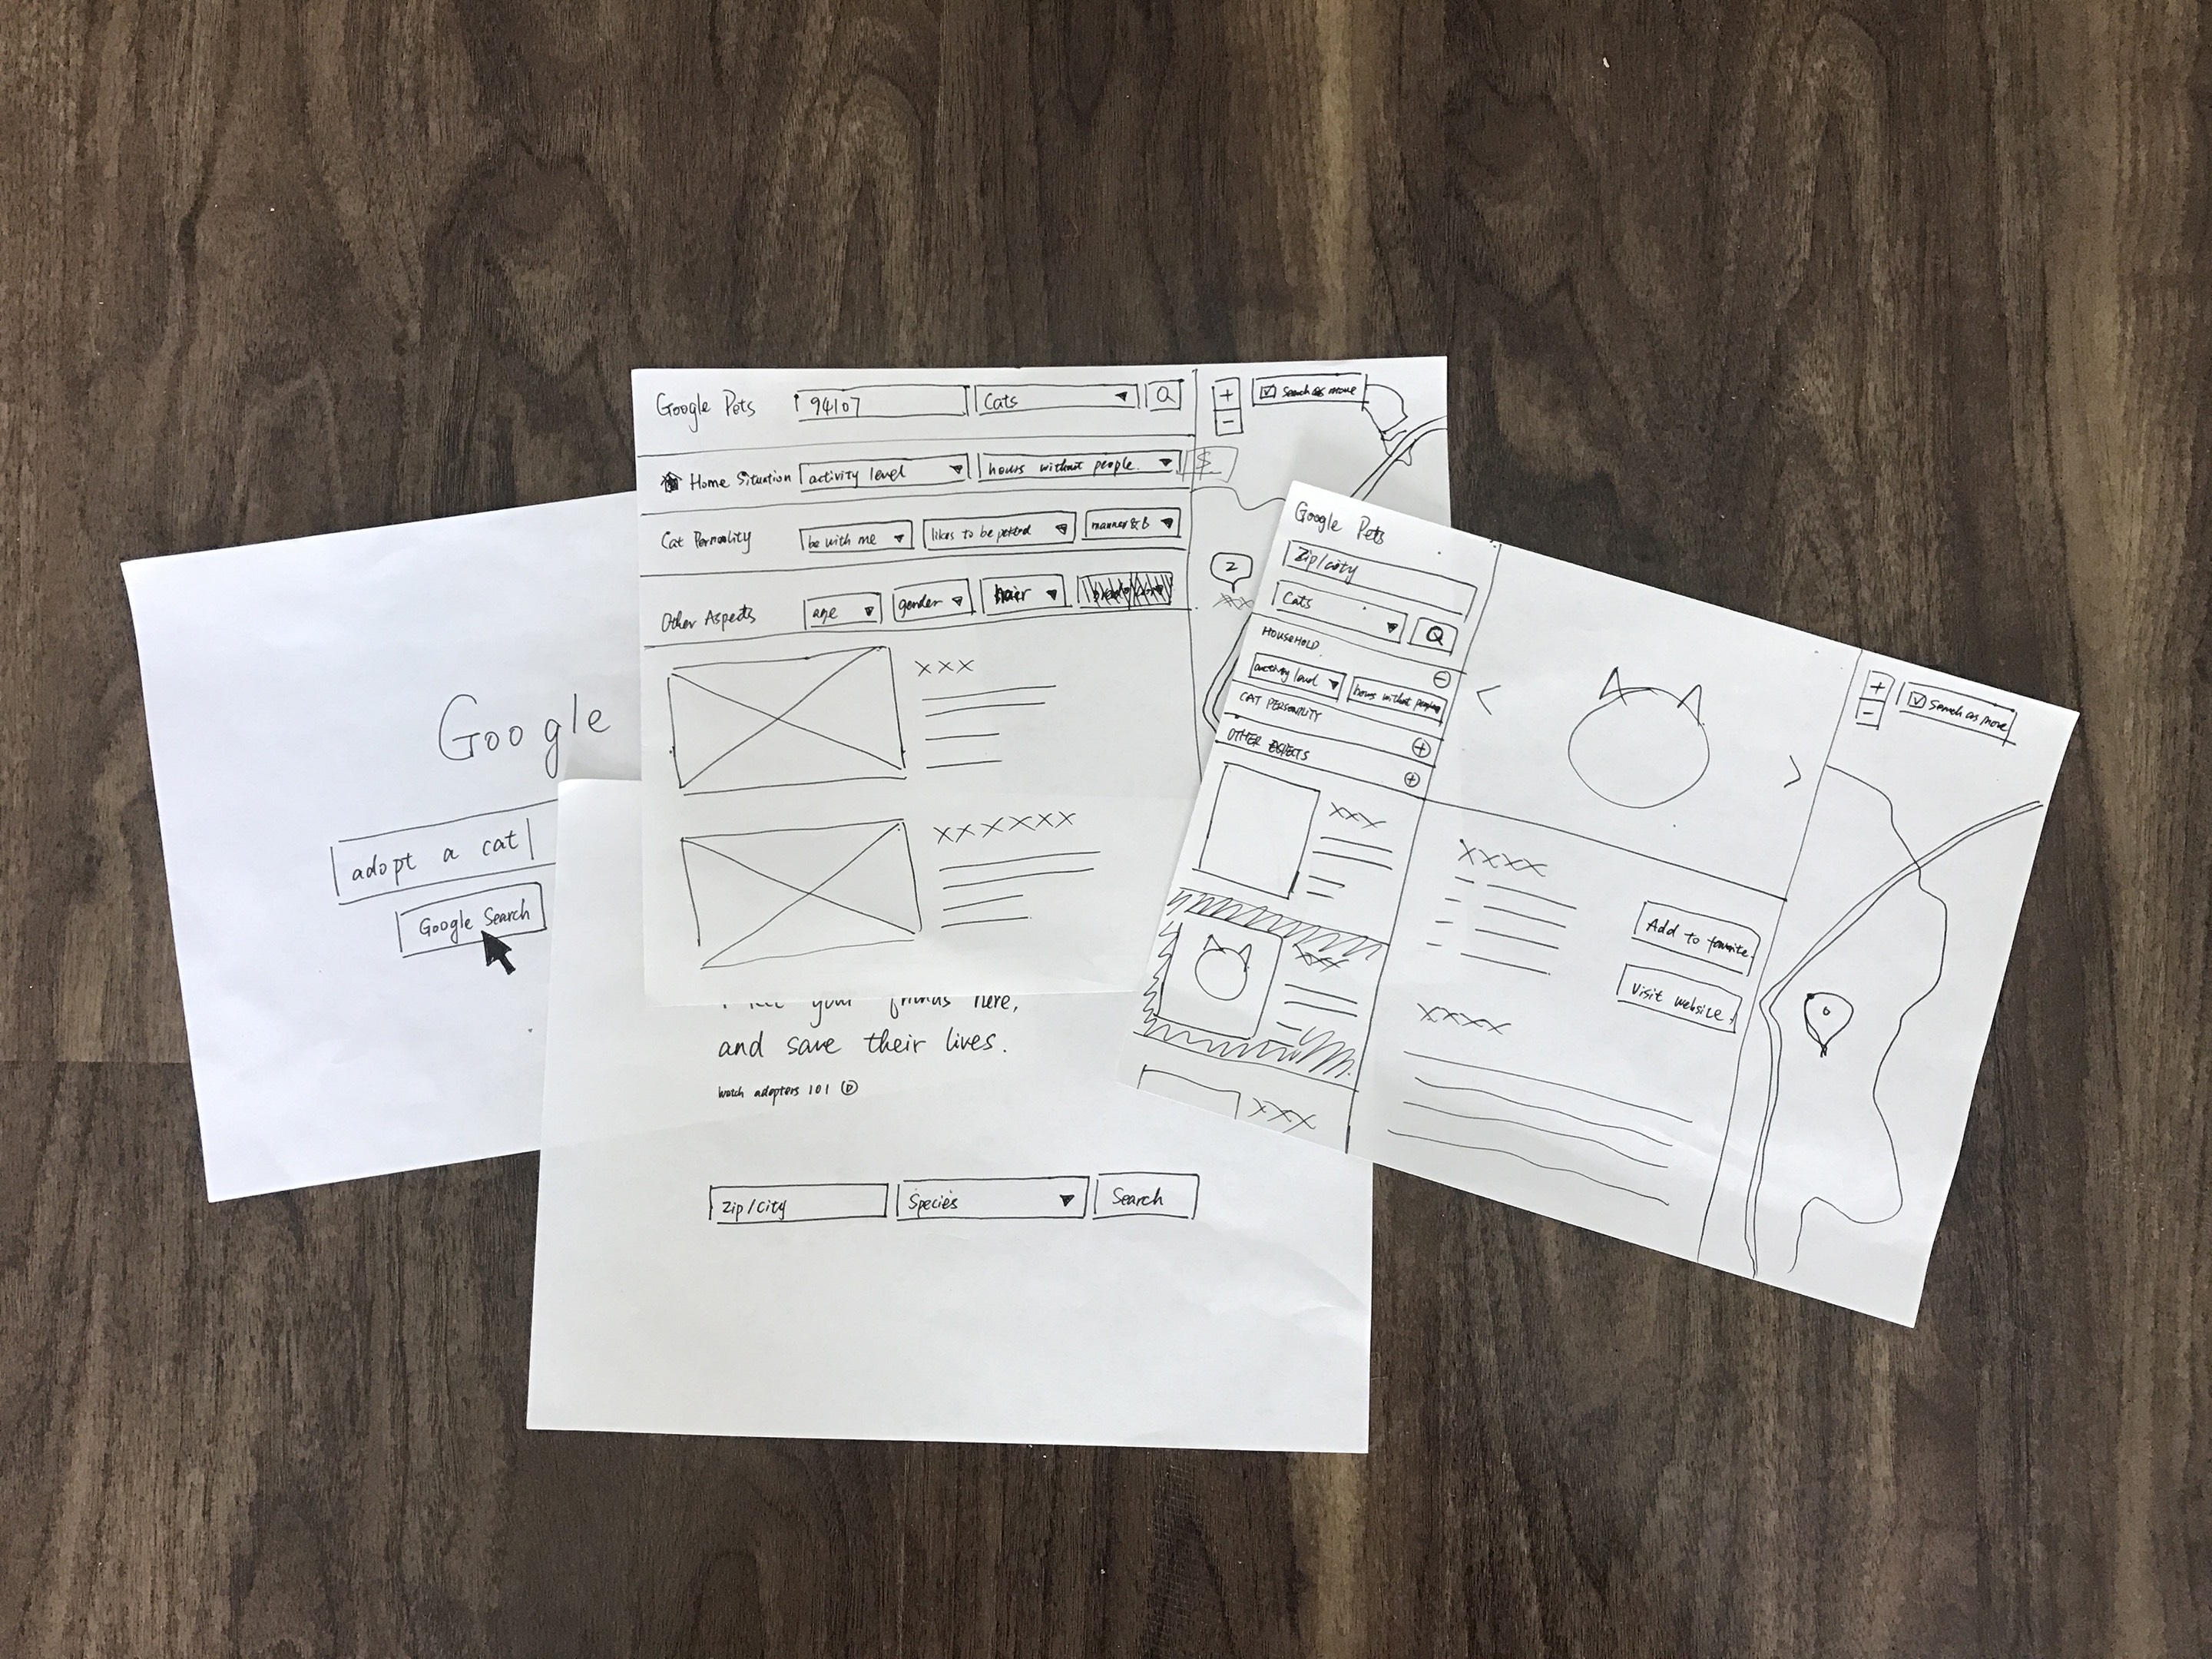 Google
adopt a cat
Google Search
Google Pets 94107 Cats
Home Situation activity level hours without people.
Cat Personality be with me likes to be petted manner & B
Other Aspects age gender hair
XXX
XXXXXX
+
-
Search as move
$
2
your friends here,
and save their lives.
watch adopters 101
Zip/City Species Search
Google Pets
Zip/city
Cats
HOUSEHOLD
activity level hours without people
CAT PERSONALITY
OTHER ASPECTS
XXX
XXX
XXX
<
>
XXXX
Add to favorite
Visit website
XXXX
+
-
Search as move